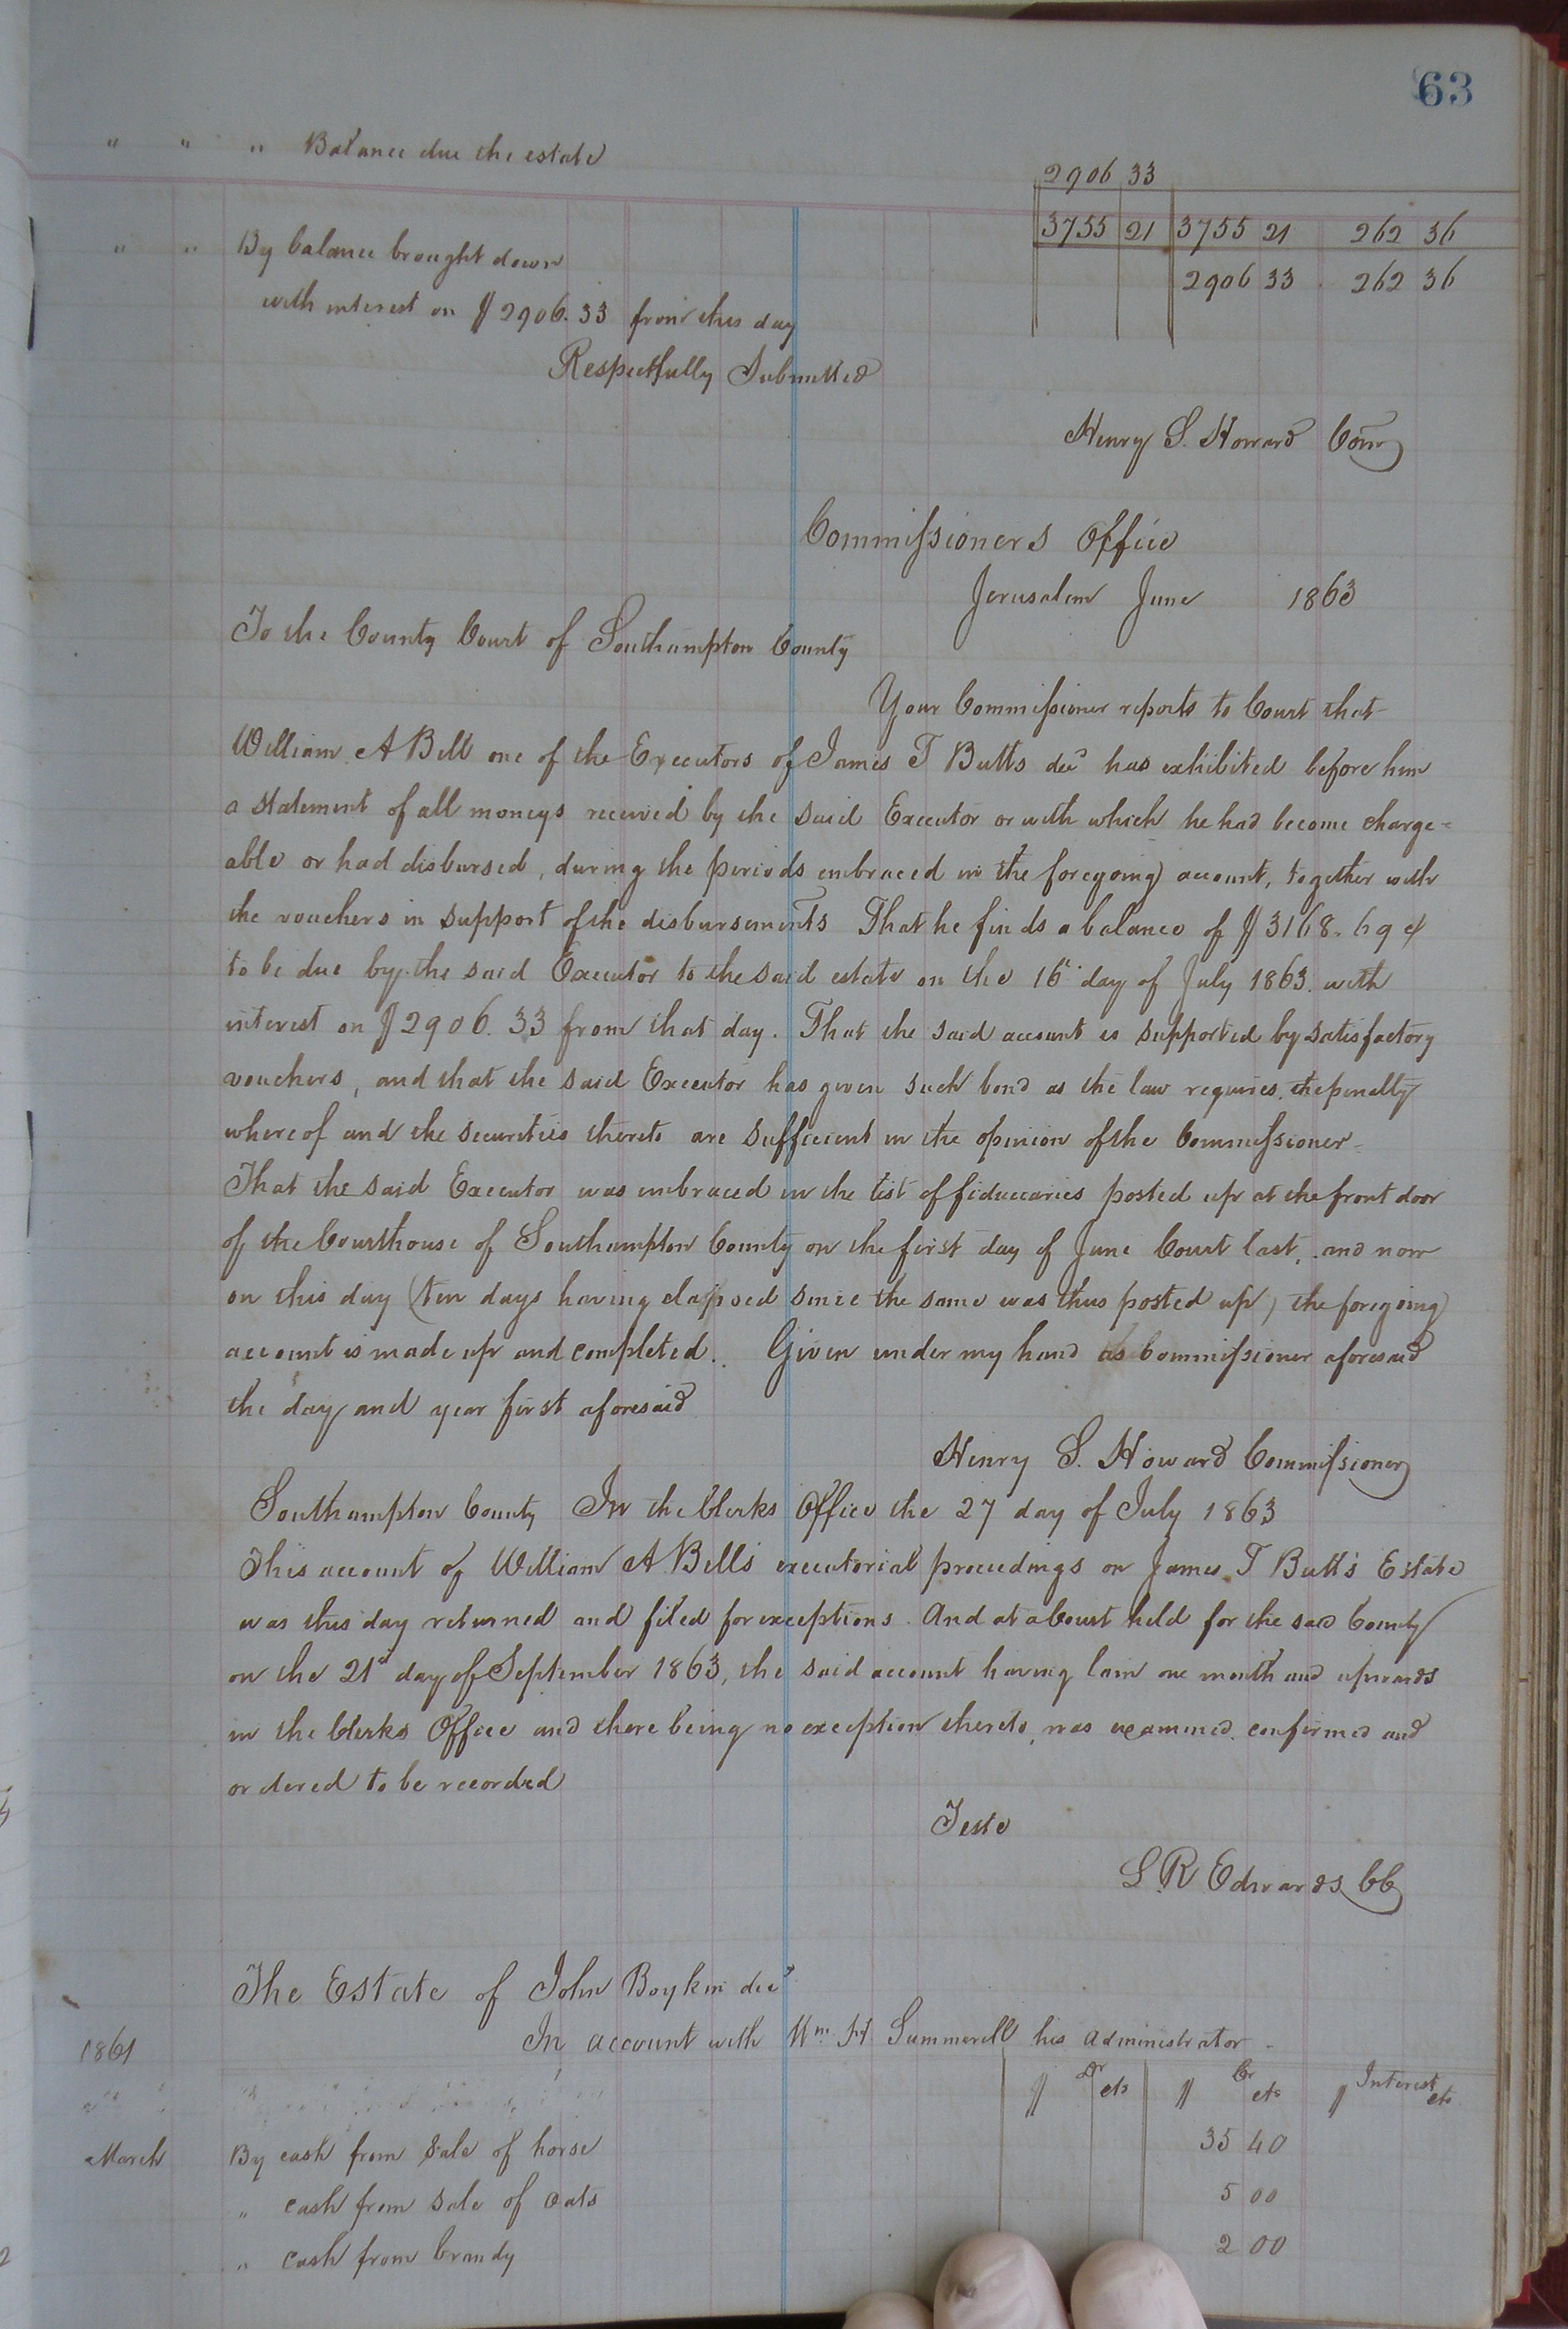 63
" " " Balance due the estate
2906 33
3755 21 3755 21 262 36
" " By balance brought down 2906 33 262 36
with interest on $2906.33 from this day
Respectfully Submitted
Henry S. Howard Comr
Commissioners Office
Jerusalem June 1863
To the County Court of Southampton County
Your Commissioner reports to Court that
William A Bell one of the Executors of James T Butts decd has exhibited before him
a statement of all moneys received by the said Executor or with which he had become charge=
able or had disbursed, during the periods embraced in the foregoing account, together with
the vouchers in support of the disbursements That he finds a balance of $3168.69 cts
to be due by the said Executor to the said estate on the 16th day of July 1863. with
interest on $2906.33 from that day. That the said account is supported by satisfactory
vouchers, and that the said Executor has given such bond as the law requires, the penalty
whereof and the securities thereto are sufficient in the opinion of the Commissioner-
That the said Executor was embraced in the list of fiduciaries posted up at the front door
of the Courthouse of Southampton County on the first day of June Court last, and now
on this day (ten days having elapsed since the same was thus posted up) the foregoing
account is made up and completed. Given under my hand as Commissioner aforesaid
the day and year first aforesaid
Henry S. Howard Commissioner
Southampton County In the Clerks Office the 27 day of July 1863
This account of William A. Bells executorial proceedings on James T Butts Estate
was this day returned and filed for exceptions. And at a Court held for the said County
on the 21st day of September 1863, the said account having lain one month and upwards
in the Clerks Office and there being no exception thereto, was examined. confirmed and
ordered to be recorded
Teste
L R Edwards CC
The Estate of John Boykin decd
In account with Wm H Summerell his administrator
1861
$ Dr cts $ Cr cts $ Interest cts
March By cash from sale of horse 35 40
" cash from sale of oats 5 00
" cash from brandy 2 00